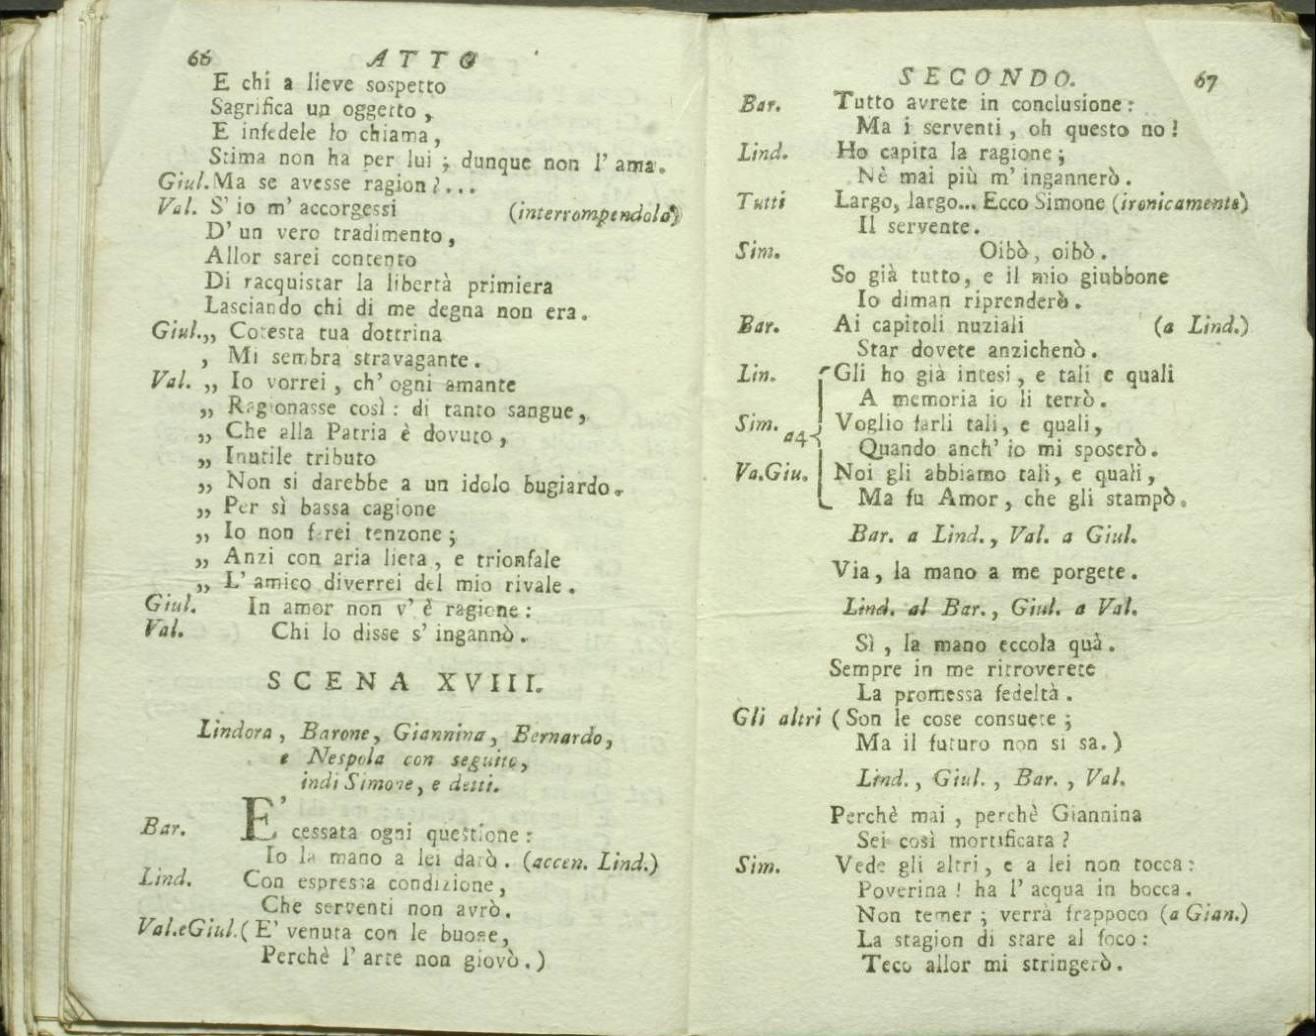 66 ATTO
E chi a lieve sospetto
Sagrifica un oggetto,
E infedele lo chiama,
Stima non ha per lui; dunque non l' ama.
Giul. Ma se avesse ragion?...
Val. S' io m' accorgessi (interrompendola)
D' un vero tradimento,
Allor sarei contento
Di racquistar la libertà primiera
Lasciando chi di me degna non era.
Giul.,, Cotesta tua dottrina
, Mi sembra stravagante.
Val. ,, Io vorrei, ch' ogni amante
,, Ragionasse così: di tanto sangue,
,, Che alla Patria è dovuto,
,, Inutile tributo
,, Non si darebbe a un idolo bugiardo.
,, Per sì bassa cagione
,, Io non farei tenzone;
,, Anzi con aria lieta, e trionfale
,, L' amico diverrei del mio rivale.
Giul. In amor non v' è ragione:
Val. Chi lo disse s' ingannò.
SCENA XVIII.
Lindora, Barone, Giannina, Bernardo,
e Nespola con seguito,
indi Simone, e detti.
Bar. E' cessata ogni questione:
Io la mano a lei darò. (accen. Lind.)
Lind. Con espressa condizione,
Che serventi non avrò.
Val.eGiul. (E' venuta con le buone,
Perchè l' arte non giovò.)
SECONDO. 67
Bar. Tutto avrete in conclusione:
Ma i serventi, oh questo no!
Lind. Ho capita la ragione;
Nè mai più m' ingannerò.
Tutti Largo, largo... Ecco Simone (ironicamente)
Il servente.
Sim. Oibò, oibò.
So già tutto, e il mio giubbone
Io diman riprenderò.
Bar. Ai capitoli nuziali (a Lind.)
Star dovete anzichenò.
Lin. Gli ho già intesi, e tali e quali
A memoria io li terrò.
Sim. a4 Voglio farli tali, e quali,
Quando anch' io mi sposerò.
Va.Giu. Noi gli abbiamo tali, e quali,
Ma fu Amor, che gli stampò.
Bar. a Lind., Val. a Giul.
Via, la mano a me porgete.
Lind. al Bar., Giul. a Val.
Sì, la mano eccola quà.
Sempre in me ritroverete
La promessa fedeltà.
Gli altri (Son le cose consuete;
Ma il futuro non si sa.)
Lind., Giul., Bar., Val.
Perchè mai, perchè Giannina
Sei così mortificata?
Sim. Vede gli altri, e a lei non tocca:
Poverina! ha l' acqua in bocca.
Non temer; verrà frappoco (a Gian.)
La stagion di stare al foco:
Teco allor mi stringerò.